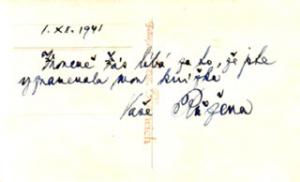 1. XII. 1941
Srdečně Vás líbá za to, že jste
vyznamenala mou knížku
Vaše Růžena